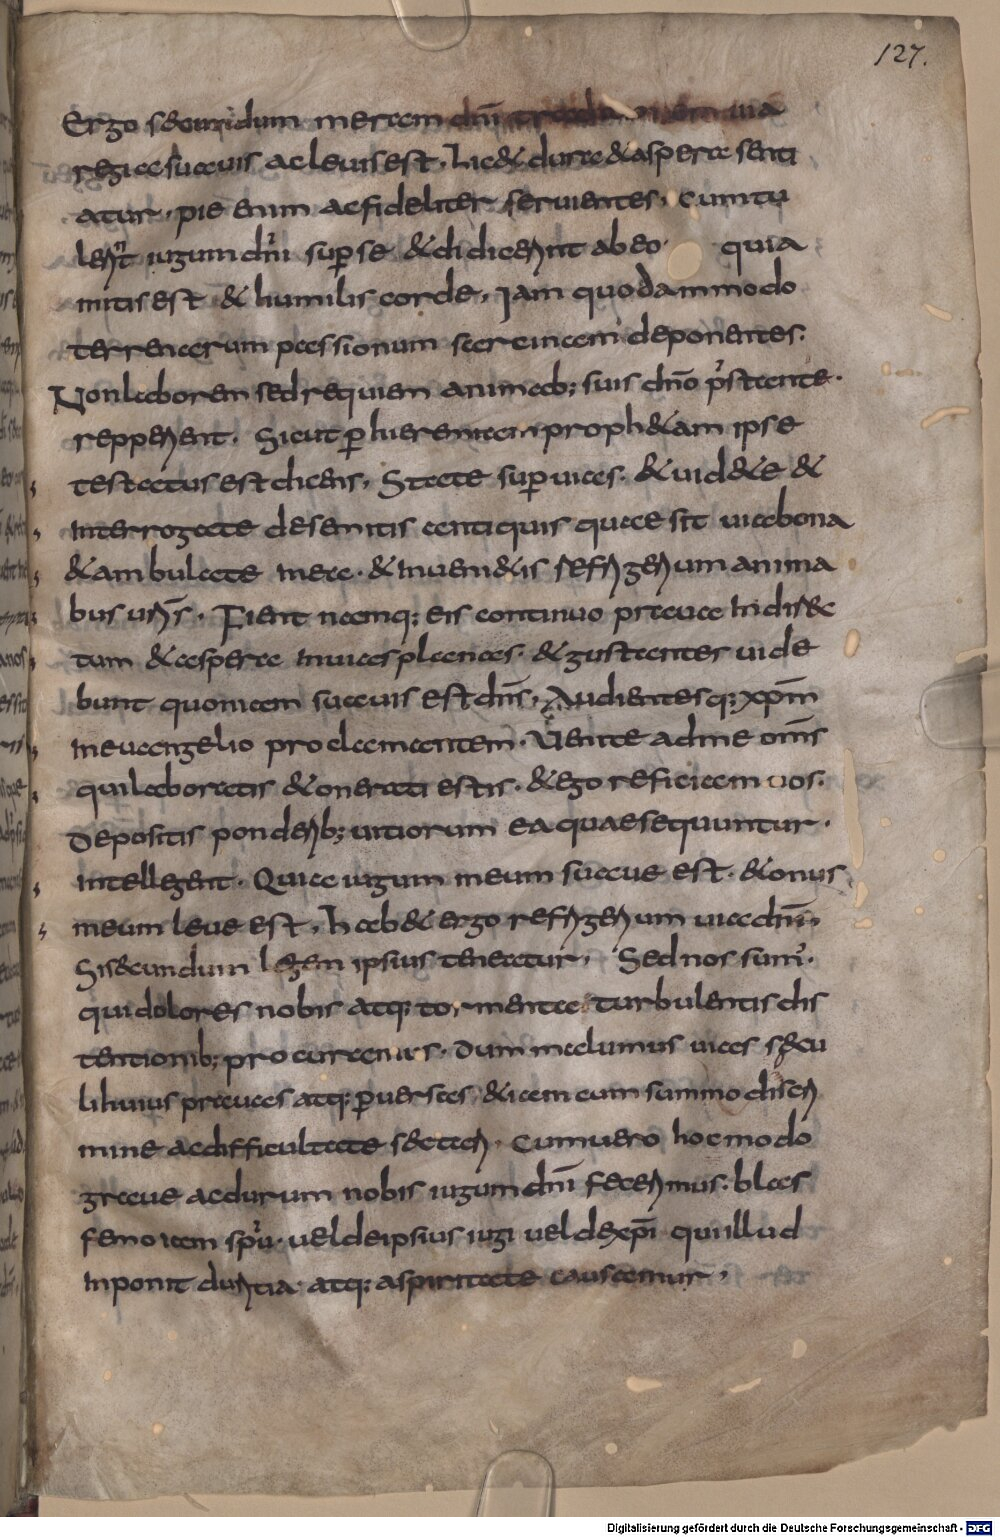 127.
Ergo secundum mercem dñi via
regia suavis ac levis est. Lic& dura & aspera senti
atur. pie enim ac fideliter servientes. cum tu
lerīt iugum dñi sup se & didicerint ab eo quia
mitis est & humilis corde. Iam quodammodo
terrenarum passionum sarcinam deponentes.
Non laborem sed requiem animab; suis dño p̄stante.
repperient. Sicut p hieremiam proph&am ipse
testatus est dicens. State sup vias. & vid&e &
interrogate de semitis antiquis quae sit via bona
& ambulate in ea. & inveni&is refrigerium anima
bus vris. Fient namq; eis continuo prava in direc
tum & aspera in vias planas. & gustantes vide
bunt quoniam suavis est dñs. Audientesq; xpm̄
in evangelio proclamantem. Venite ad me oms̄
qui laboratis & onerati estis. & ego reficiam vos.
Depositis ponderib; vitiorum ea quae sequuntur.
intellegent. Quia iugum meum suave est. & onus
meum leve est. Hab& ergo refrigerium via dñi.
Si secundum legem ipsius teneatur. Sed nos sum'.
qui dolores nobis atq; tormenta turbulentis dis
tentionib; procuramus. Dum malumus vias saecu
li huius pravas atq; pversas. & iam cum summo discri
mine ac difficultate sectari. Cum vero hoc modo
grave ac durum nobis iugum dñi fecerimus. blas
femo iam spu. vel de ipsius iugi vel de xpi qui illud
inponit duritia atq; aspiritate causamur.
Digitalisierung gefördert durch die Deutsche Forschungsgemeinschaft - DFG